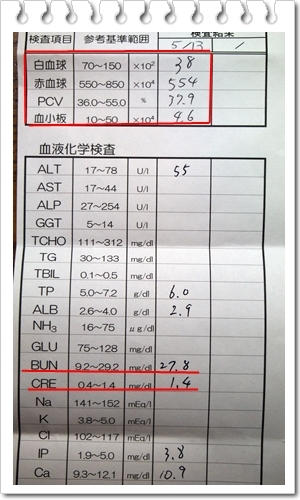 検査項目 参考基準範囲 検査結果
5/13 /
白血球 70~150 ×10² 38
赤血球 550~850 ×10⁴ 554
PCV 36.0~55.0 % 37.9
血小板 10~50 ×10⁴ 4.6
血液化学検査
ALT 17~78 U/l 55
AST 17~44 U/l
ALP 27~254 U/l
GGT 5~14 U/l
TCHO 111~312 mg/dl
TG 30~133 mg/dl
TBIL 0.1~0.5 mg/dl
TP 5.0~7.2 g/dl 6.0
ALB 2.6~4.0 g/dl 2.9
NH₃ 16~75 μg/dl
GLU 75~128 mg/dl
BUN 9.2~29.2 mg/dl 27.8
CRE 0.4~1.4 mg/dl 1.4
Na 141~152 mEq/l
K 3.8~5.0 mEq/l
Cl 102~117 mEq/l
IP 1.9~5.0 mg/dl 3.8
Ca 9.3~12.1 mg/dl 10.9